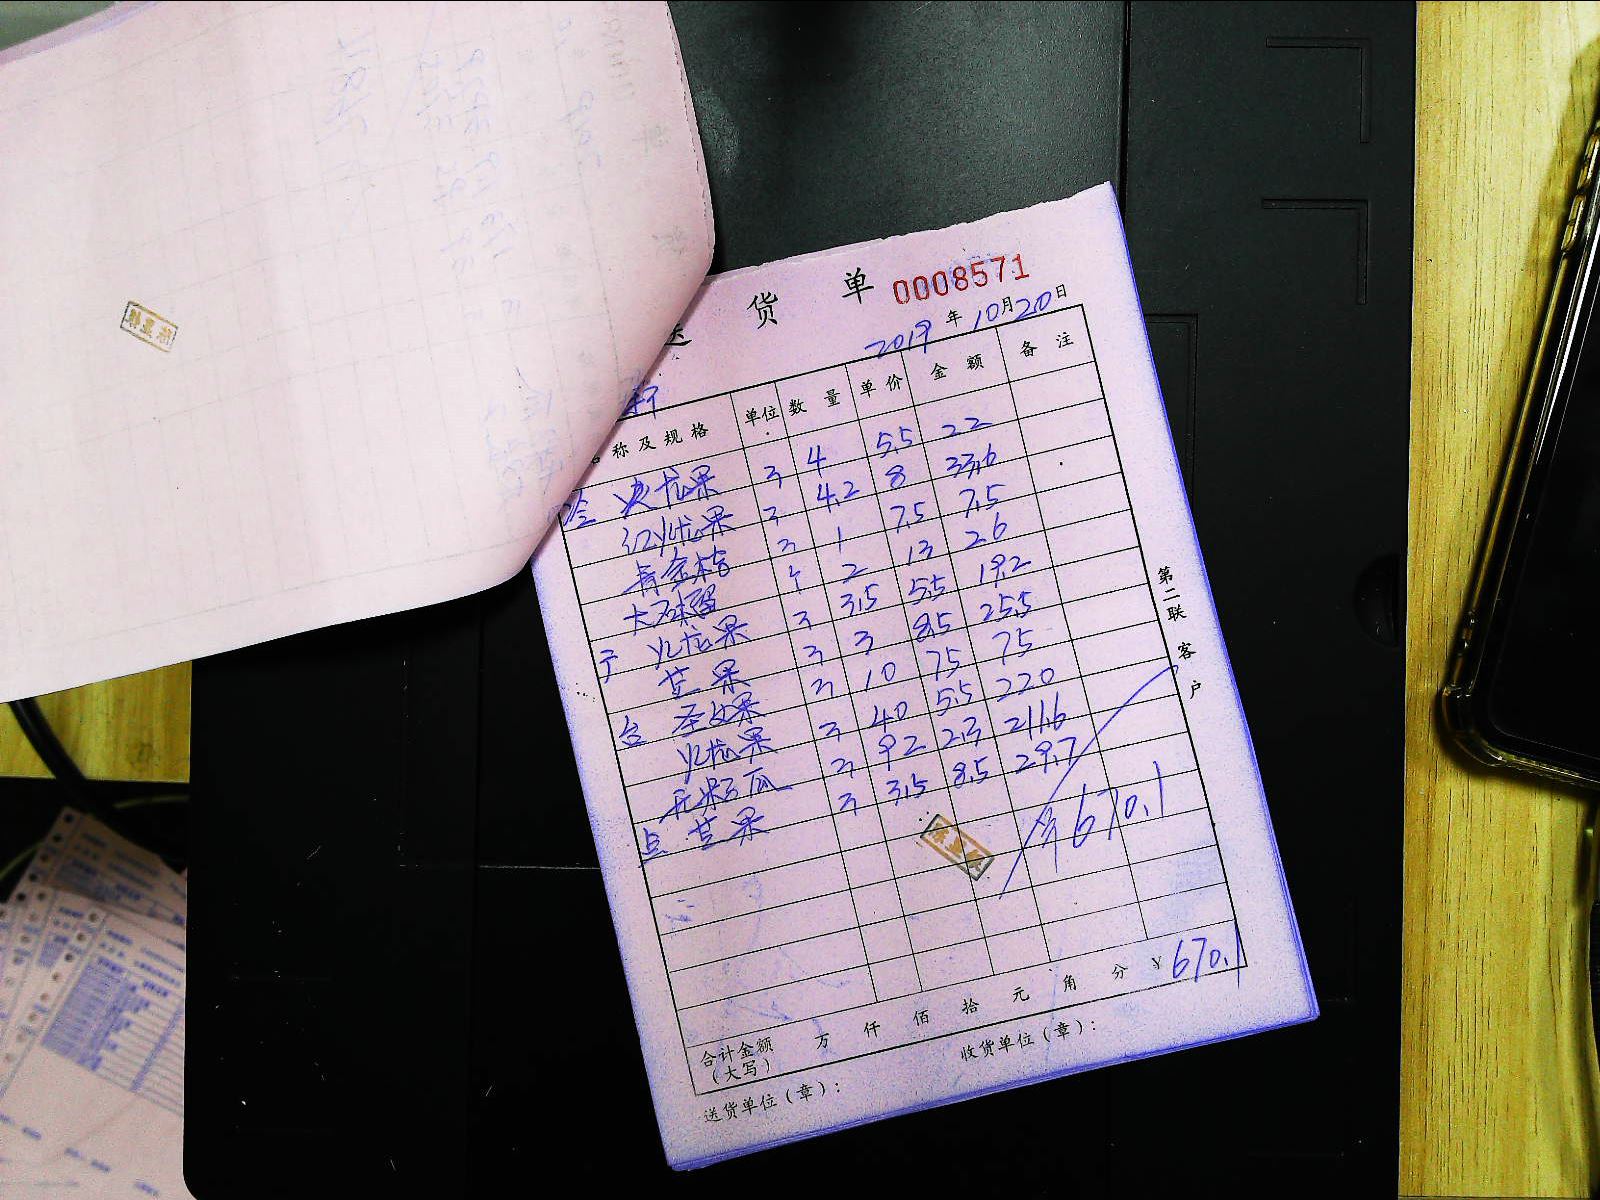 送 货 单 0008571
2019 年 10 月 20 日
称 及 规 格 单位 数 量 单 价 金 额 备 注
火龙果 4 5.5 22
红火龙果 4.2 8 33.6
青金桔 1 7.5 7.5
大石榴 个 2 13 26
火龙果 3.5 5.5 19.2
芒果 3 8.5 25.5
圣女果 10 7.5 75
火龙果 40 5.5 220
瓜 92 2.3 211.6
点 芒果 3.5 8.5 29.7
670.1
合计金额（大写） 万 仟 佰 拾 元 角 分 ￥ 670.1
送货单位（章）： 收货单位（章）：
第二联 客户